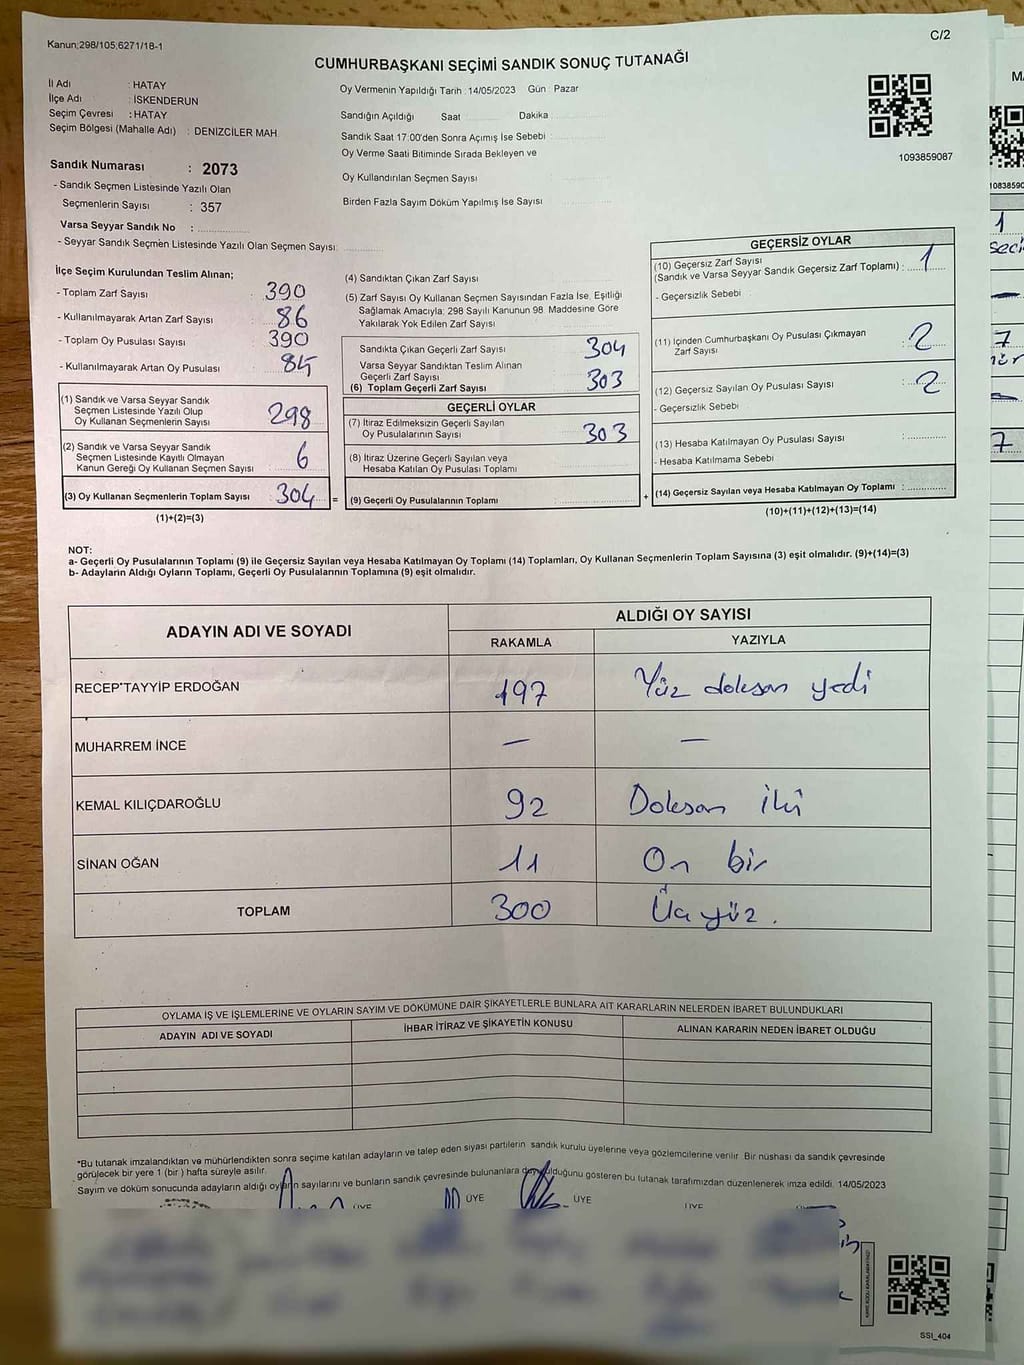 Kanun:298/105,6271/18-1
C/2
CUMHURBAŞKANI SEÇİMİ SANDIK SONUÇ TUTANAĞI
İl Adı : HATAY
İlçe Adı : İSKENDERUN
Seçim Çevresi : HATAY
Seçim Bölgesi (Mahalle Adı) : DENİZCİLER MAH.
Sandık Numarası : 2073
- Sandık Seçmen Listesinde Yazılı Olan
Seçmenlerin Sayısı : 357
Varsa Seyyar Sandık No :
- Seyyar Sandık Seçmen Listesinde Yazılı Olan Seçmen Sayısı:
Oy Vermenin Yapıldığı Tarih : 14/05/2023 Gün : Pazar
Sandığın Açıldığı Saat Dakika
Sandık Saat 17:00'den Sonra Açımış İse Sebebi :
Oy Verme Saati Bitiminde Sırada Bekleyen ve
Oy Kullandırılan Seçmen Sayısı
Birden Fazla Sayım Döküm Yapılmış İse Sayısı
1093859087
İlçe Seçim Kurulundan Teslim Alınan;
- Toplam Zarf Sayısı : 390
- Kullanılmayarak Artan Zarf Sayısı : 86
- Toplam Oy Pusulası Sayısı : 390
- Kullanılmayarak Artan Oy Pusulası : 85
(1) Sandık ve Varsa Seyyar Sandık
Seçmen Listesinde Yazılı Olup
Oy Kullanan Seçmenlerin Sayısı : 298
(2) Sandık ve Varsa Seyyar Sandık
Seçmen Listesinde Kayıtlı Olmayan
Kanun Gereği Oy Kullanan Seçmen Sayısı : 6
(3) Oy Kullanan Seçmenlerin Toplam Sayısı : 304
(1)+(2)=(3)
=
(4) Sandıktan Çıkan Zarf Sayısı
(5) Zarf Sayısı Oy Kullanan Seçmen Sayısından Fazla İse, Eşitliği
Sağlamak Amacıyla; 298 Sayılı Kanunun 98. Maddesine Göre
Yakılarak Yok Edilen Zarf Sayısı
Sandıkta Çıkan Geçerli Zarf Sayısı 304
Varsa Seyyar Sandıktan Teslim Alınan
Geçerli Zarf Sayısı
(6) Toplam Geçerli Zarf Sayısı 303
GEÇERLİ OYLAR
(7) İtiraz Edilmeksizin Geçerli Sayılan
Oy Pusulalarının Sayısı 303
(8) İtiraz Üzerine Geçerli Sayılan veya
Hesaba Katılan Oy Pusulası Toplamı
(9) Geçerli Oy Pusulalarının Toplamı
+
GEÇERSİZ OYLAR
(10) Geçersiz Zarf Sayısı
(Sandık ve Varsa Seyyar Sandık Geçersiz Zarf Toplamı) : 1
- Geçersizlik Sebebi
(11) İçinden Cumhurbaşkanı Oy Pusulası Çıkmayan
Zarf Sayısı : 2
(12) Geçersiz Sayılan Oy Pusulası Sayısı : 2
- Geçersizlik Sebebi
(13) Hesaba Katılmayan Oy Pusulası Sayısı :
- Hesaba Katılmama Sebebi
(14) Geçersiz Sayılan veya Hesaba Katılmayan Oy Toplamı :
(10)+(11)+(12)+(13)=(14)
NOT:
a- Geçerli Oy Pusulalarının Toplamı (9) ile Geçersiz Sayılan veya Hesaba Katılmayan Oy Toplamı (14) Toplamları, Oy Kullanan Seçmenlerin Toplam Sayısına (3) eşit olmalıdır. (9)+(14)=(3)
b- Adayların Aldığı Oyların Toplamı, Geçerli Oy Pusulalarının Toplamına (9) eşit olmalıdır.
ADAYIN ADI VE SOYADI
ALDIĞI OY SAYISI
RAKAMLA YAZIYLA
RECEP TAYYİP ERDOĞAN 197 Yüz doksan yedi
MUHARREM İNCE — —
KEMAL KILIÇDAROĞLU 92 Doksan İki
SİNAN OĞAN 11 On bir
TOPLAM 300 Üç yüz.
OYLAMA İŞ VE İŞLEMLERİNE VE OYLARIN SAYIM VE DÖKÜMÜNE DAİR ŞİKAYETLERLE BUNLARA AİT KARARLARIN NELERDEN İBARET BULUNDUKLARI
ADAYIN ADI VE SOYADI İHBAR İTİRAZ VE ŞİKAYETİN KONUSU ALINAN KARARIN NEDEN İBARET OLDUĞU
*Bu tutanak imzalandıktan ve mühürlendikten sonra seçime katılan adayların ve talep eden siyasi partilerin sandık kurulu üyelerine veya gözlemcilerine verilir. Bir nüshası da sandık çevresinde
görülecek bir yere 1 (bir) hafta süreyle asılır.
Sayım ve döküm sonucunda adayların aldığı oyların sayılarını ve bunların sandık çevresinde bulunanlara duyurulduğunu gösteren bu tutanak tarafımızdan düzenlenerek imza edildi. 14/05/2023
ÜYE ÜYE ÜYE ÜYE
SSİ_404